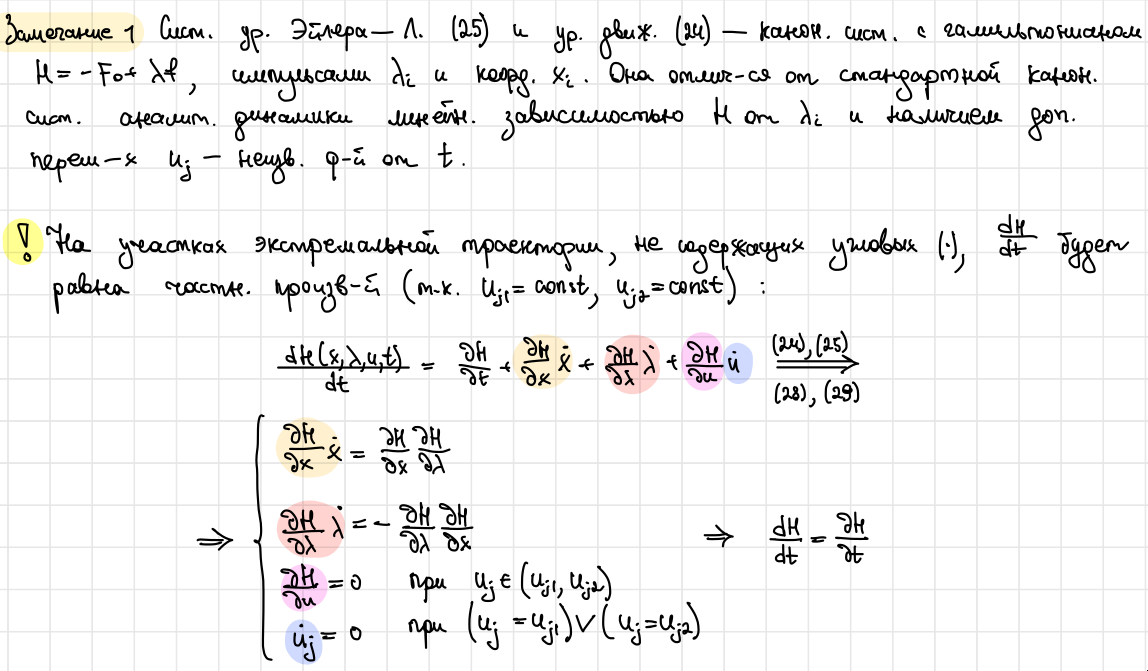 Замечание 1 Сист. ур. Эйлера – Л. (25) и ур. движ. (24) – канон. сист. с гамильтонианом
H = -F₀ + λf, импульсами λᵢ и коорд. xᵢ. Она отлич-ся от стандартной канон.
сист. аналит. динамики линейн. зависимостью H от λᵢ и наличием доп.
перем-х uⱼ – неизв. ф-й от t.
! На участках экстремальной траектории, не содержащих угловых (·), dH/dt будет
равна частн. произв-й (т.к. uⱼ₁ = const, uⱼ₂ = const) :
dH(x,λ,u,t)/dt = ∂H/∂t + ∂H/∂x ẋ + ∂H/∂λ λ̇ + ∂H/∂u u̇ (24), (25) ⟹ (28), (29)
∂H/∂x ẋ = ∂H/∂x ∂H/∂λ
⇒ { ∂H/∂λ λ̇ = - ∂H/∂λ ∂H/∂x ⇒ dH/dt = ∂H/∂t
∂H/∂u = 0 при uⱼ ∈ (uⱼ₁, uⱼ₂)
u̇ⱼ = 0 при (uⱼ = uⱼ₁) ∨ (uⱼ = uⱼ₂)